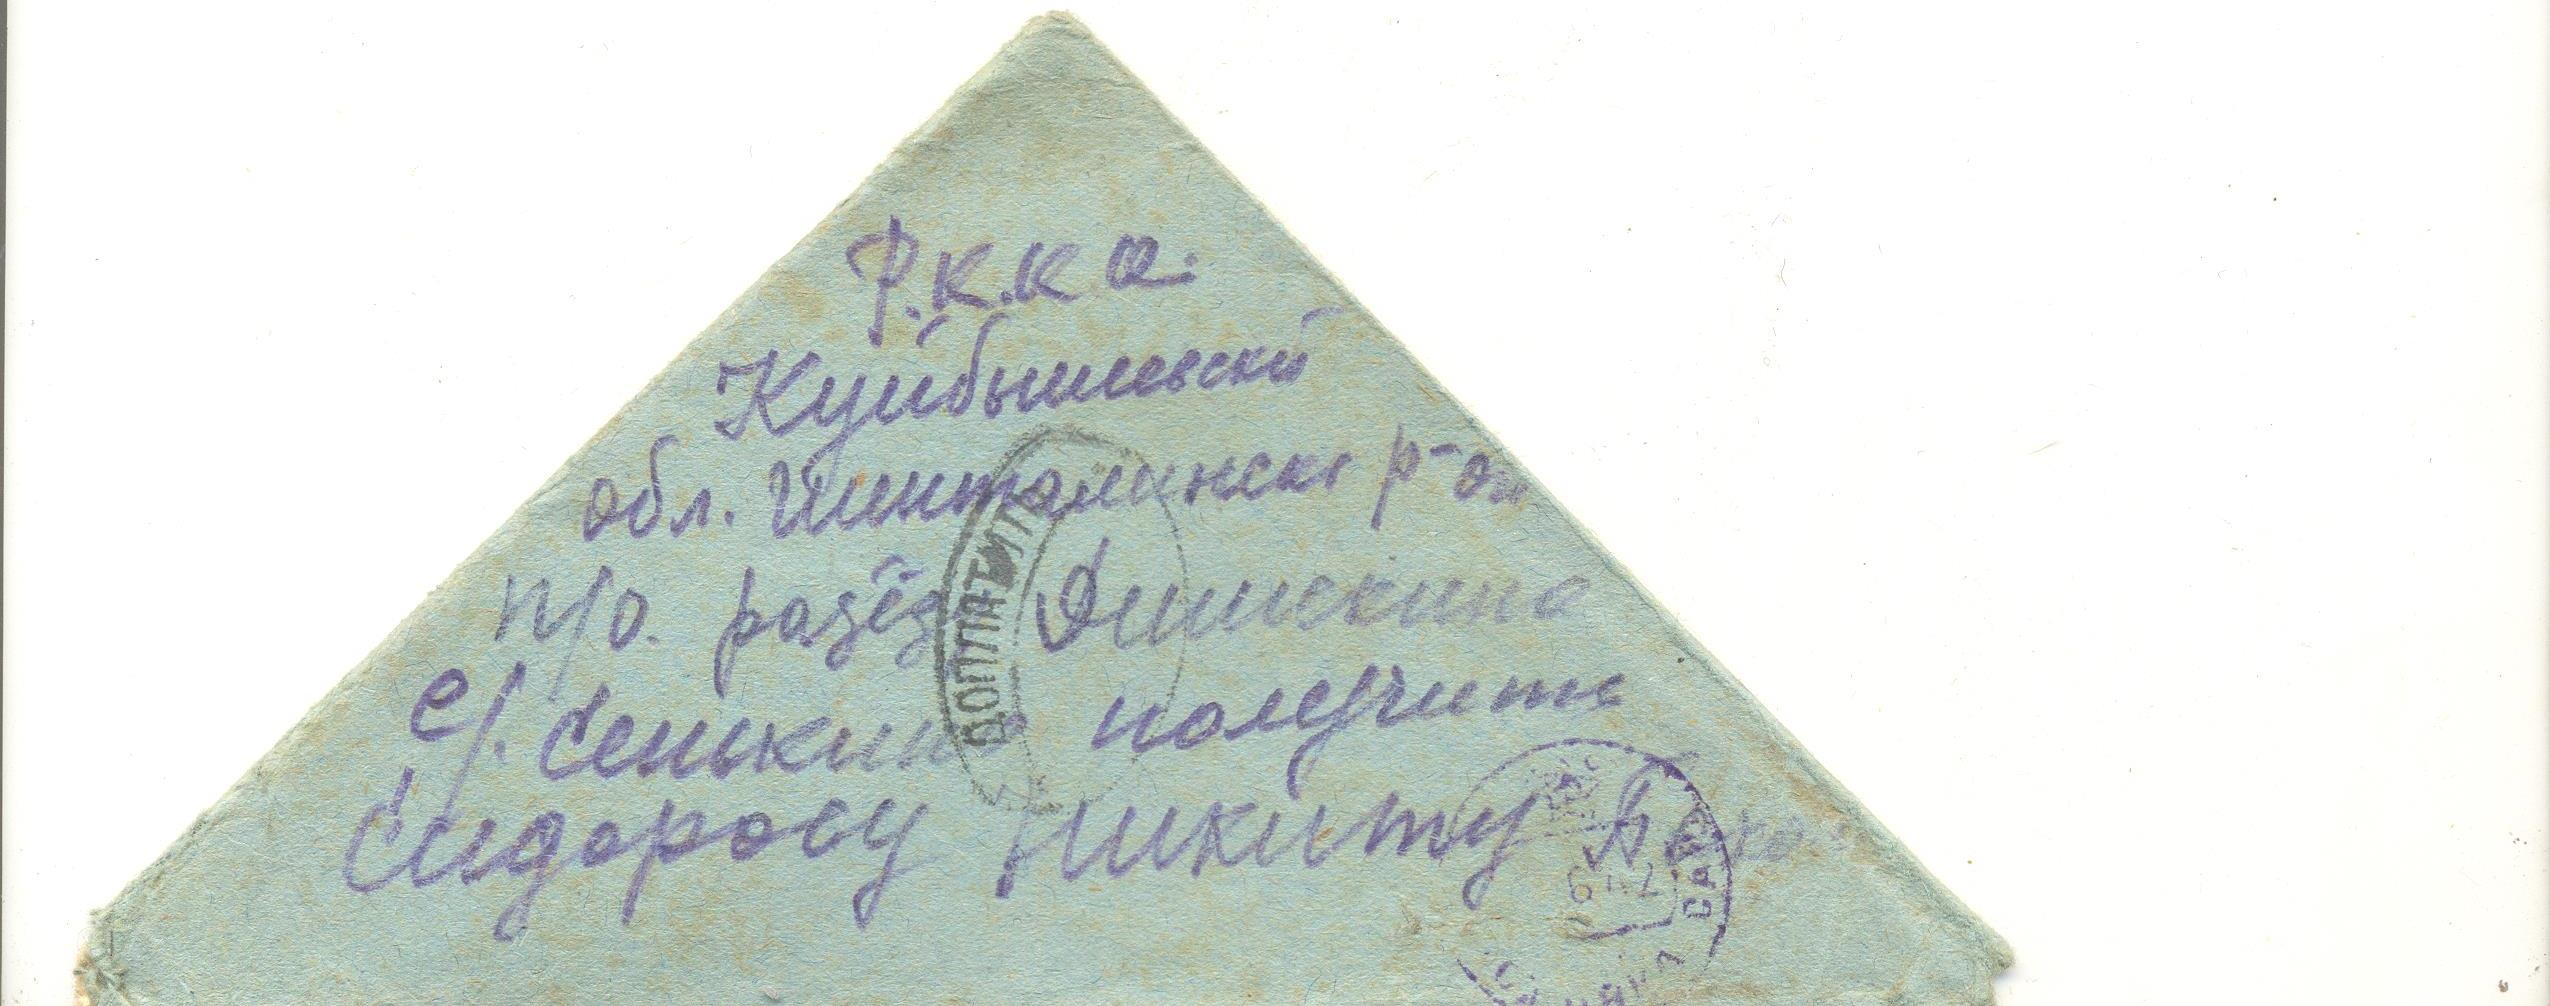 Р.К.К А.
Куйбышевский
обл. Шинталинск р-он
п/о. разъезд Дишскина
с/. Сенькино получить
Сидорову Никиту
ДОПЛАТИТЬ